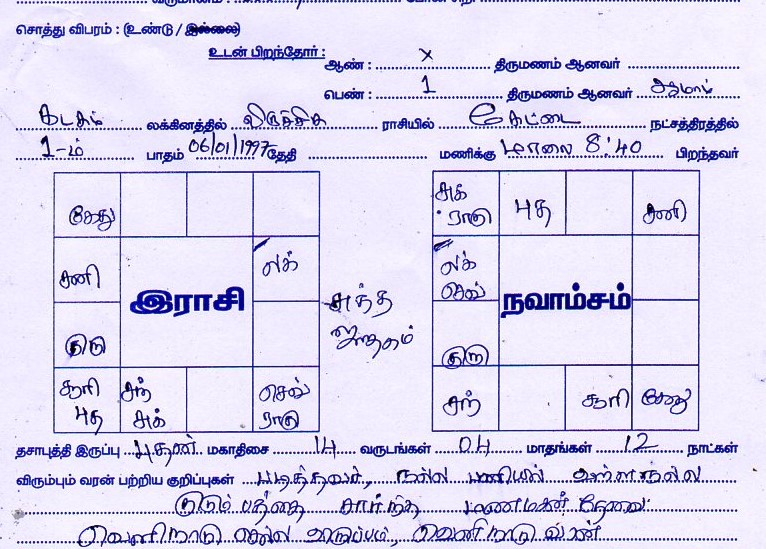 சொத்து விபரம் : (உண்டு / இல்லை)
உடன் பிறந்தோர் :
ஆண் : x திருமணம் ஆனவர்
பெண் : 1 திருமணம் ஆனவர் ஆமாம்
கடகம் லக்கினத்தில் விருச்சிக ராசியில் கேட்டை நட்சத்திரத்தில்
1-ம் பாதம் 06/01/1997 தேதி மணிக்கு மாலை 8:40 பிறந்தவர்
கேது
சனி
லக்
இராசி
குரு
சூரி
புத
சந்
சுக்
செவ்
ராகு
சுத்த
ஜாதகம்
சுக்
ராகு
புத
சனி
லக்
செவ்
நவாம்சம்
குரு
சந்
சூரி
கேது
தசாபுத்தி இருப்பு புதன் மகாதிசை 14 வருடங்கள் 04 மாதங்கள் 12 நாட்கள்
விரும்பும் வரன் பற்றிய குறிப்புகள் படித்தவர், நல்ல பணியில் உள்ள நல்ல
குடும்பத்தை சார்ந்த மணமகன் தேவை
வெளிநாடு செல்ல விருப்பம், வெளிநாடு வரன்